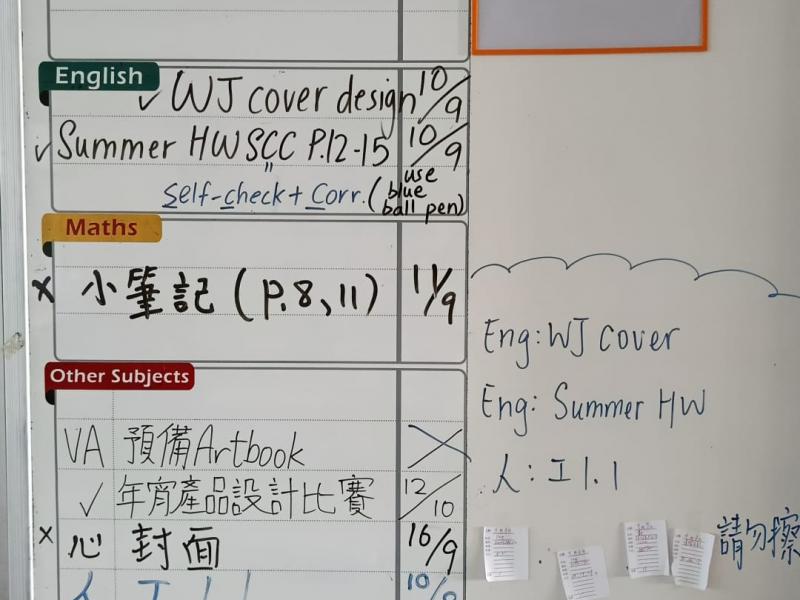 English
✓ WJ cover design 10/9
✓ Summer HW SCC P.12-15 10/9
Self-check + Corr. (use blue ball pen)
Maths
x 小筆記 (p.8、11) 11/9
Other Subjects
VA 預備Artbook
✓ 年宵產品設計比賽 12/10
x 心 封面 16/9
人 工1.1 10/9
Eng: WJ cover
Eng: Summer HW
人: 工1.1
請勿擦